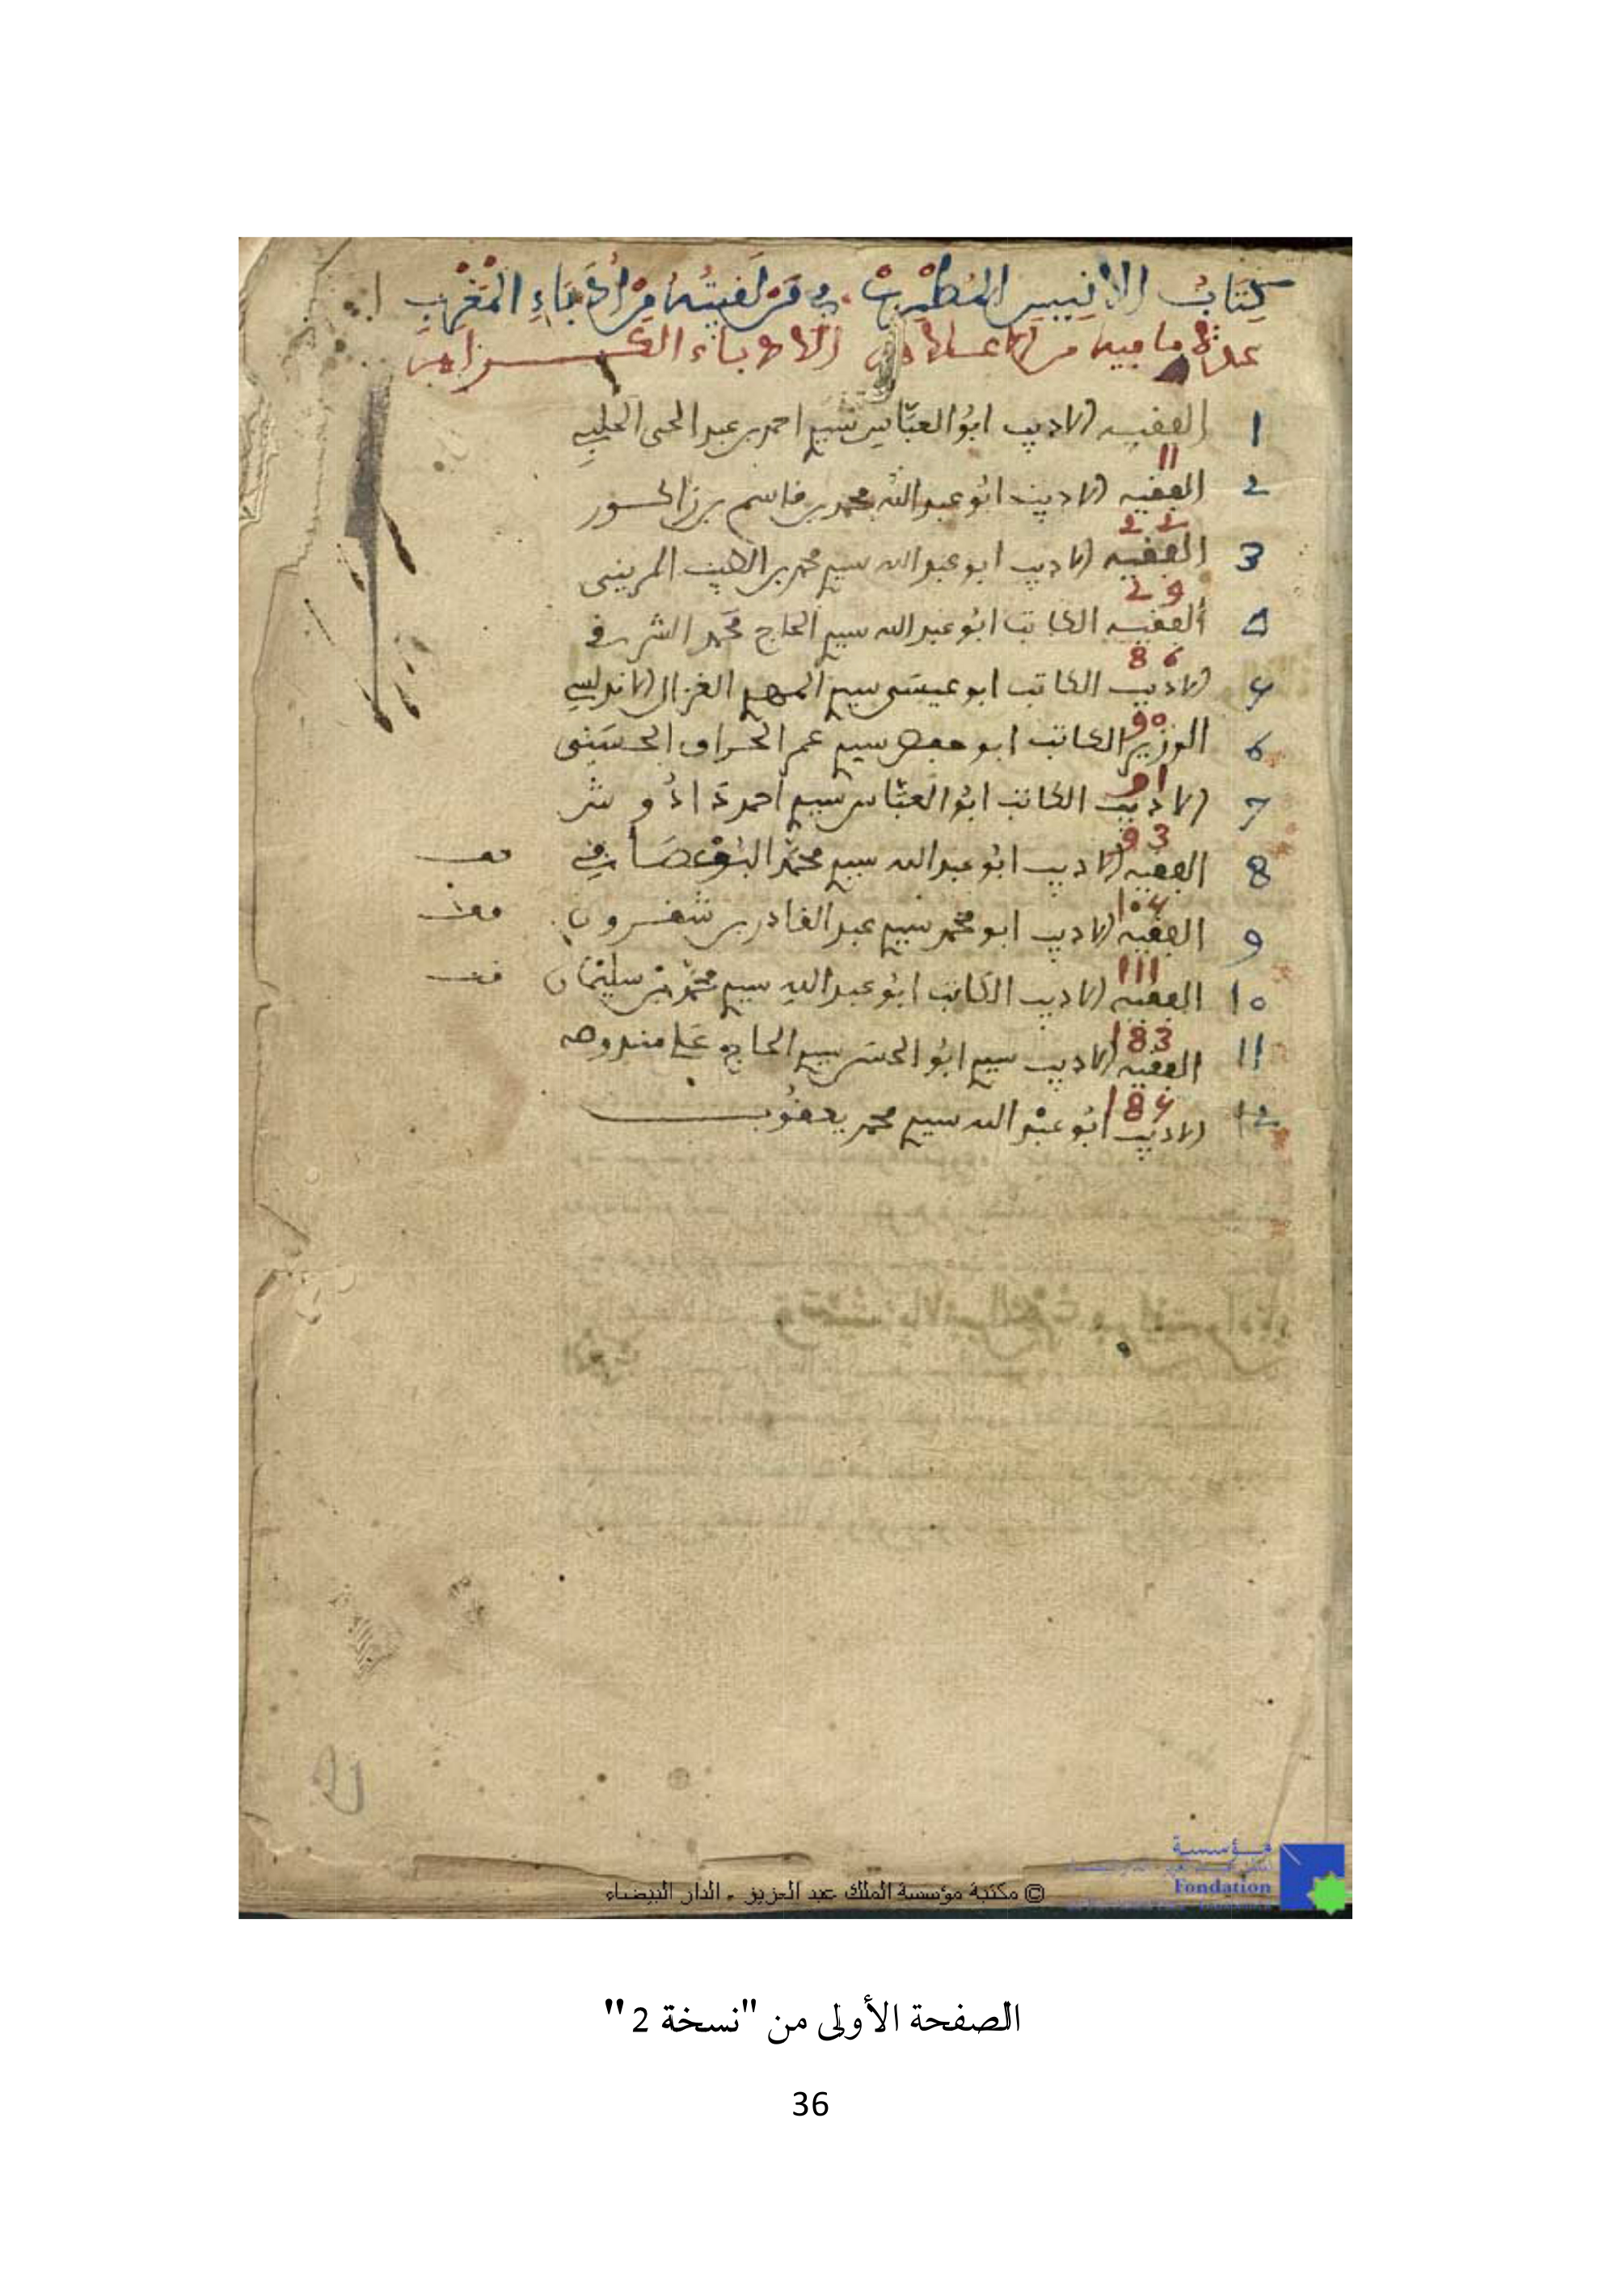 كتاب الانيس المطرب في من لفيته من ادباء المغرب
عدة ما فيه من الاعلام الادباء الكرام
1 الفقيه الاديب ابو العباس سيدي احمد بن عبد الحي الحلبي
11
2 الفقيه الاديب ابو عبد الله محمد بن قاسم بن زاكور
22
3 الفقيه الاديب ابو عبد الله سيدي محمد بن الطيب المريني
29
4 الفقيه الكاتب ابو عبد الله سيدي الحاج محمد الشرفي
86
5 الاديب الكاتب ابو عيسى سيدي المهدي الغزال الاندلسي
90
6 الوزير الكاتب ابو حفص سيدي عمر الحراق الحسني
91
7 الاديب الكاتب ابو العباس سيدي احمد دادوش
93
8 الفقيه الاديب ابو عبد الله سيدي محمد البوعصامي
104
9 الفقيه الاديب ابو محمد سيدي عبد القادر بن شقرون
111
10 الفقيه الاديب الكاتب ابو عبد الله سيدي محمد بن سليمان
183
11 الفقيه الاديب سيدي ابو الحسن سيدي الحاج علي مندوصه
184
12 الاديب ابو عبد الله سيدي محمد يعقوب
مؤسسة
Fondation
© مكتبة مؤسسة الملك عبد العزيز ـ الدار البيضاء
الصفحة الأولى من "نسخة 2"
36